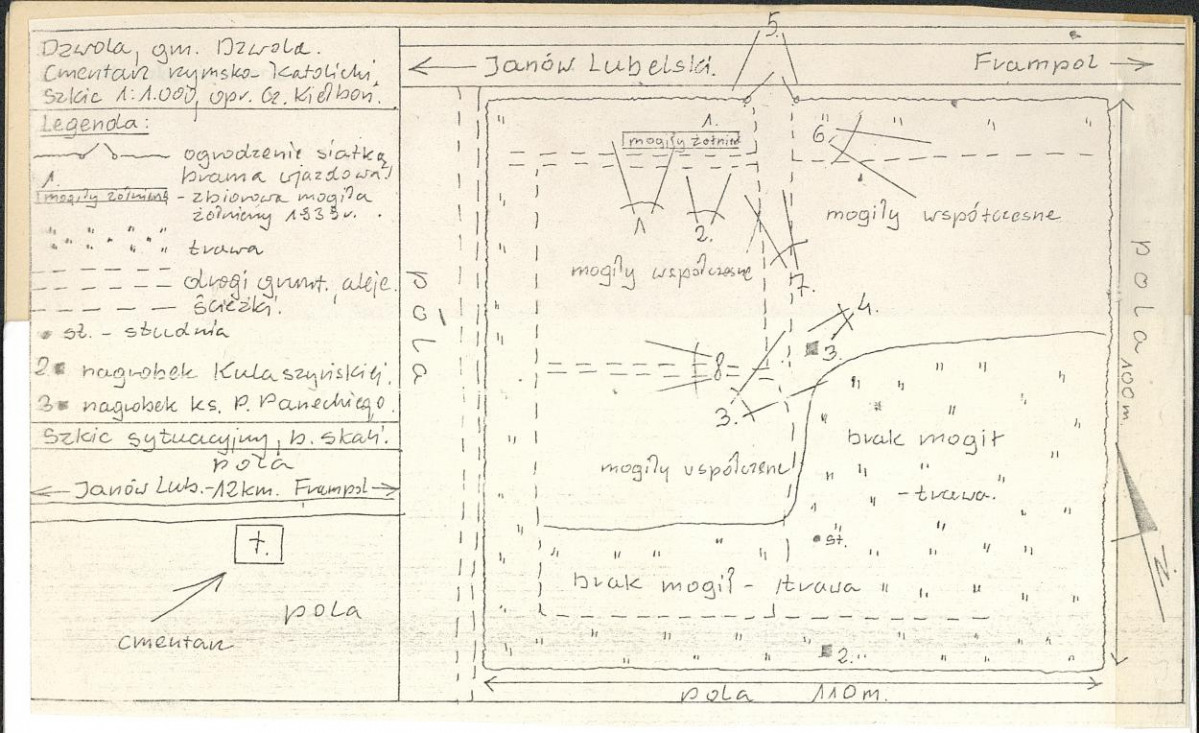 Dzwola, gm. Dzwola.
Cmentarz rzymsko-katolicki.
Szkic 1:1.000, opr. Cz. Kiełboń.
Legenda:
ogrodzenie siatką,
brama wjazdowa.
1.
mogiły żołnierz - zbiorowa mogiła
żołnierzy 1939r.
trawa
drogi grunt., aleje.
ścieżki.
st. - studnia
2 nagrobek Kulaszyńskiej.
3 nagrobek ks. P. Paneckiego.
Szkic sytuacyjny, b. skali.
pola
Janów Lub.-12km. Frampol
†.
pola
cmentarz
5.
Janów Lubelski.
Frampol
1.
mogiły żołnierz
6.
mogiły współczesne
1
2.
mogiły współczesne
7.
4.
3.
8
3.
pola
pola
100m.
brak mogił
-trawa.
mogiły współczesne
st.
brak mogił - trawa
2.
N.
pola 110m.